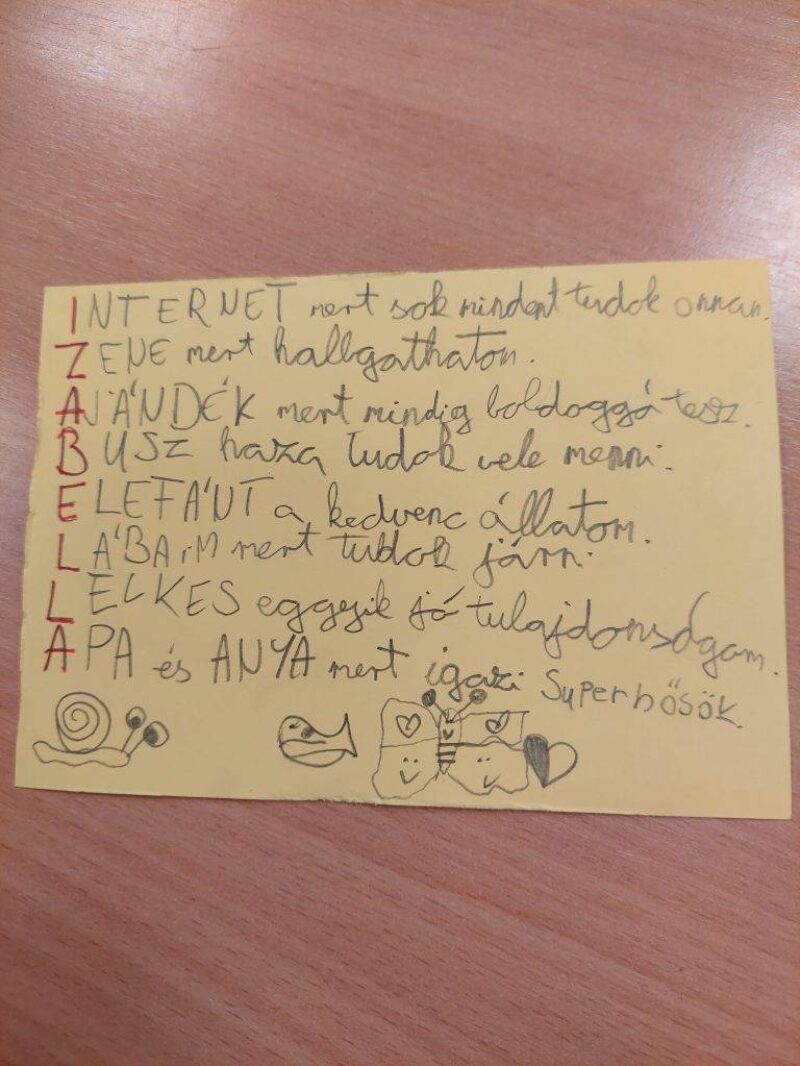 INTERNET mert sok mindent tudok onnan.
ZENE mert hallgathatom.
AJÁNDÉK mert mindig boldoggá tesz.
BUSZ haza tudok vele menni.
ELEFÁNT a kedvenc állatom.
LÁBAIM mert tudok járni.
LELKES eggyik jó tulajdonságam.
APA és ANYA mert igazi Superhősök.